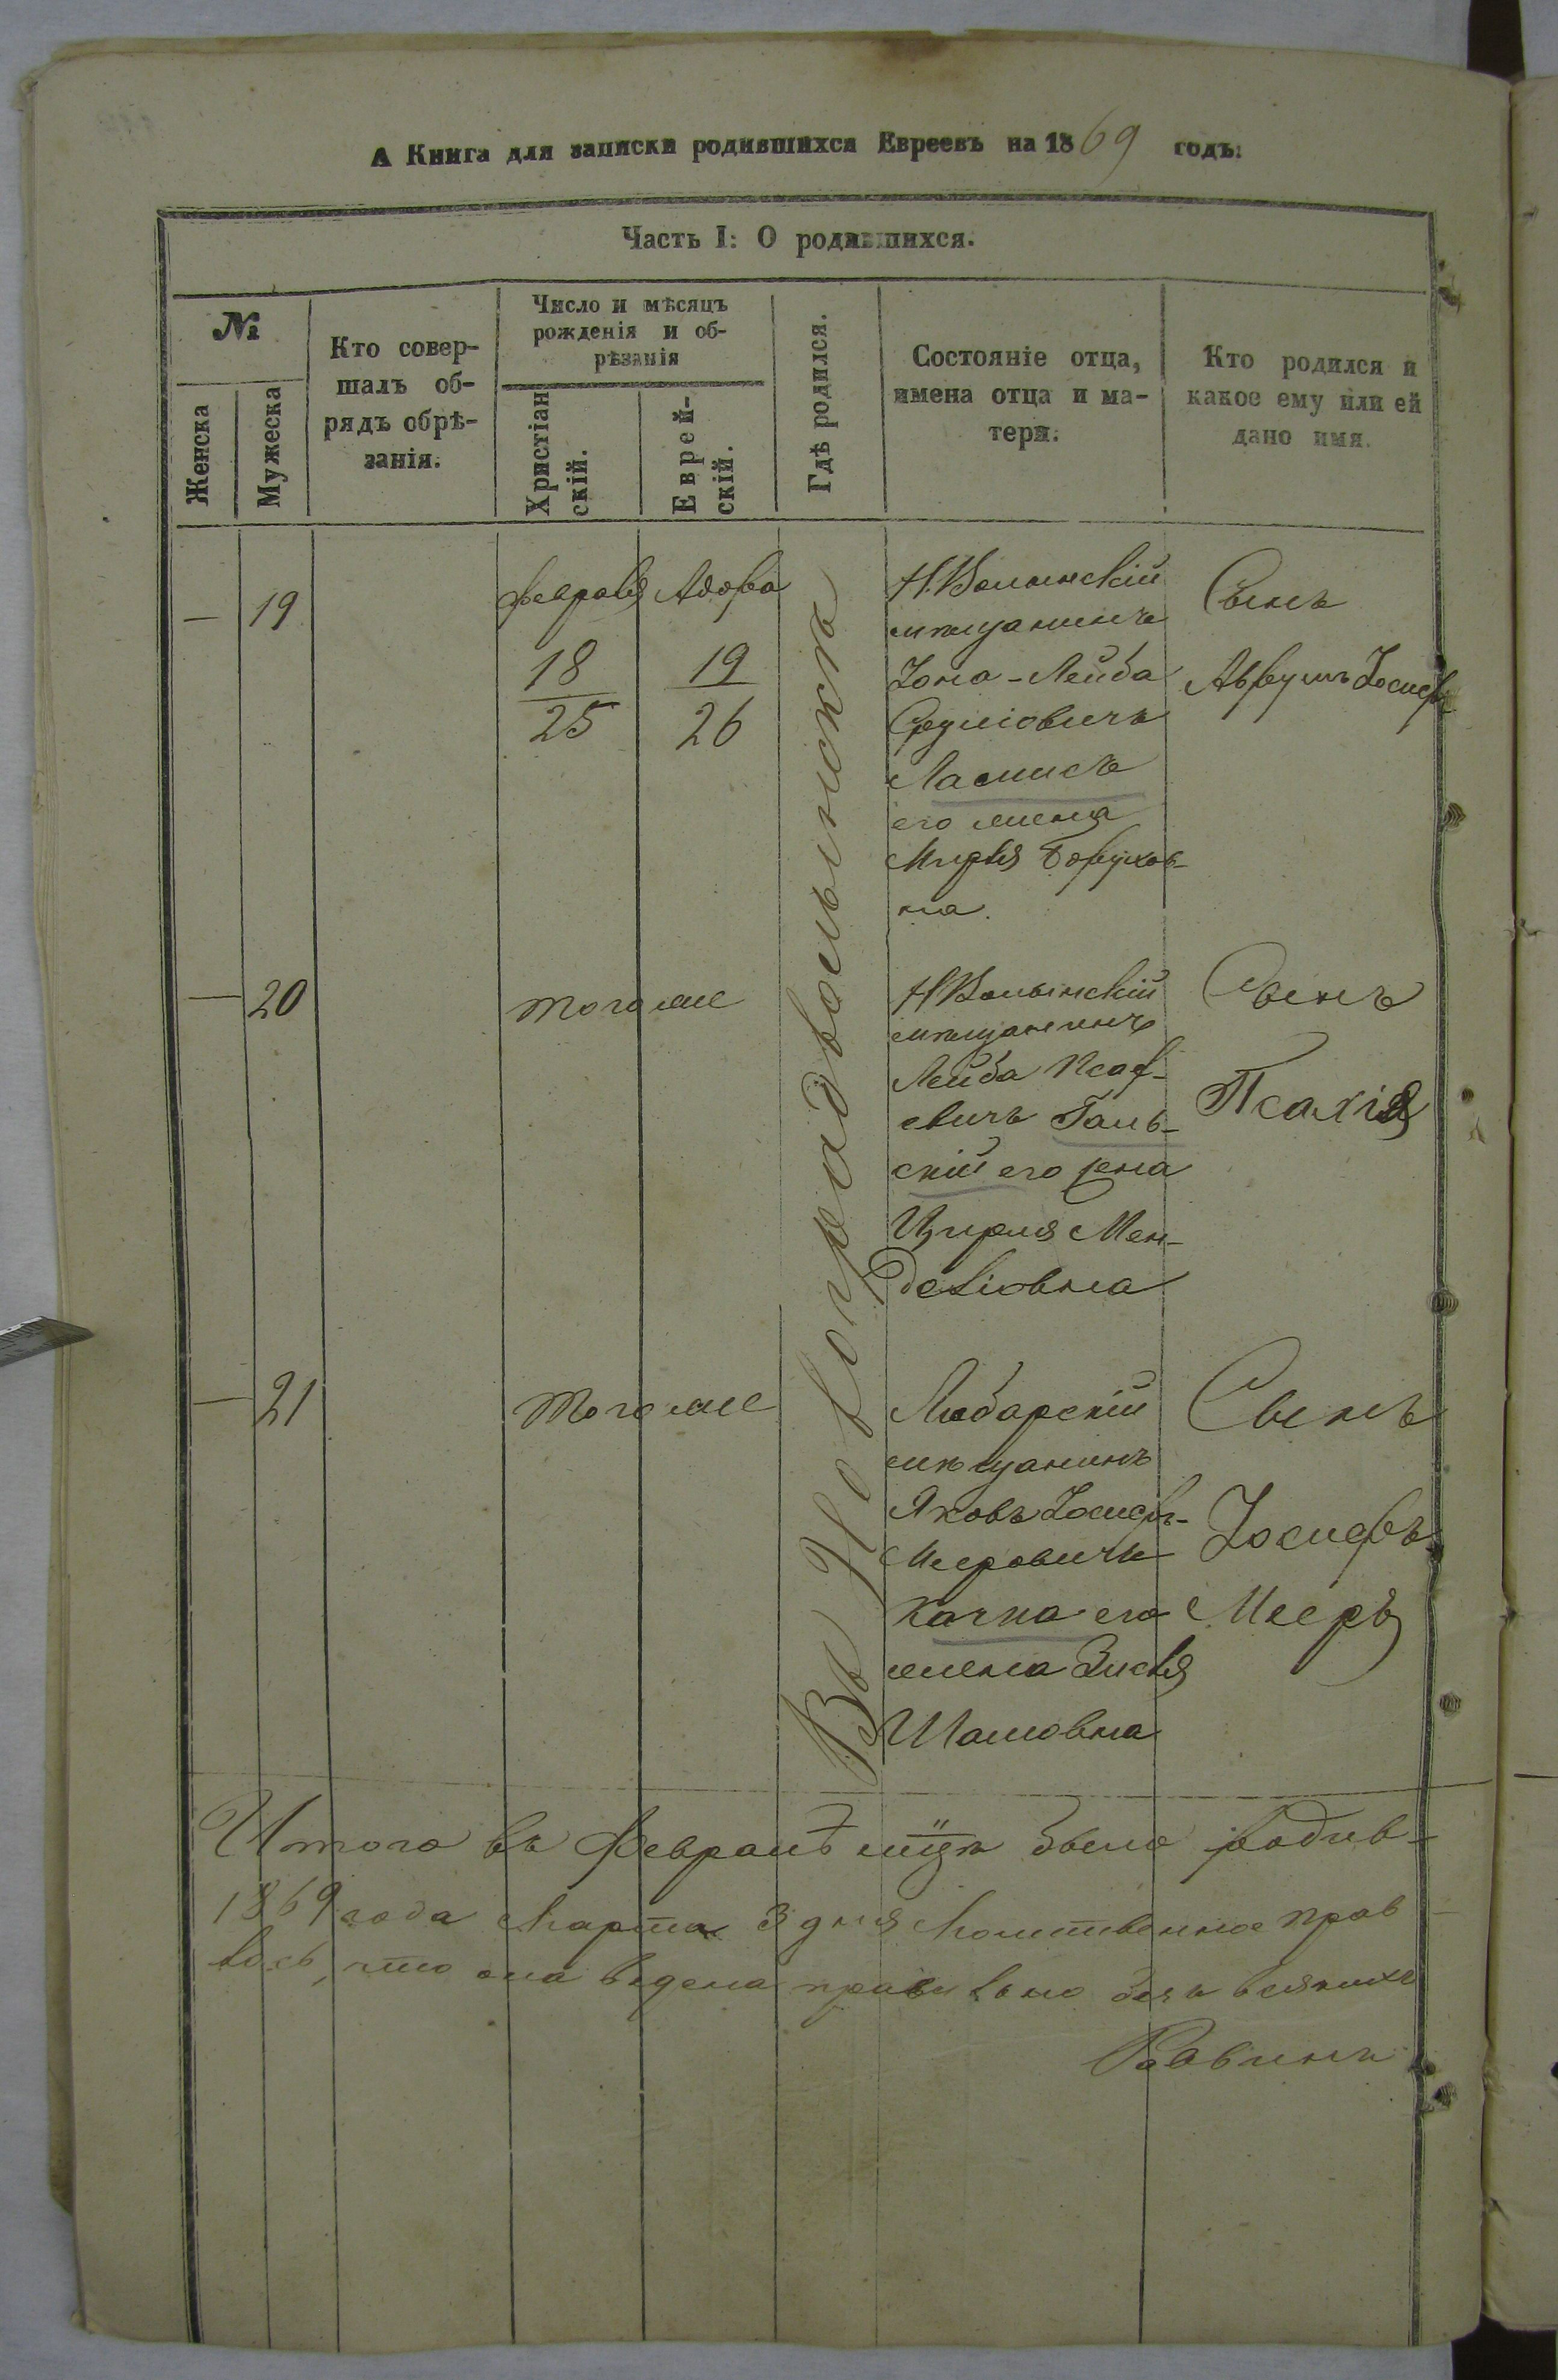 А Книга для записки родившихся Евреевъ на 1869 годъ.
Часть I: О родившихся.
№
Женска
Мужеска
Кто совер-
шалъ об-
рядъ обрѣ-
занія.
Число и мѣсяцъ
рожденія и об-
рѣзанія
Христіан
скій.
Еврей-
скій.
Гдѣ родился.
Состояніе отца,
имена отца и ма-
тери.
Кто родился и
какое ему или ей
дано имя.
Въ Новоградволынскѣ
— 19
Февраля Адора
18 19
25 26
Н.Волынскій
мѣщанинъ
Іона-Лейба
Сруліовичъ
его жена
Мирля Борухов-
на.
Сынъ
Аврумъ Іосифъ
— 20
тогоже
Н Волынскій
мѣщанинъ
Лейба
евичъ Галь-
скій его жена
Цирля Мен-
деліовна
Сынъ
Псахія
— 21
тогоже
Любарскій
мѣщанинъ
Яковъ Іосифъ-
Мееровичъ
Качка его
жена Зисля
Шаиовна
Сынъ
Іосифъ
Мееръ
Итого въ Февралѣ мцѣ было родив-
1869 года Марта 3 дня Молитвенное прав
лось, что она ведена правильно безъ всякихъ
Раввинъ